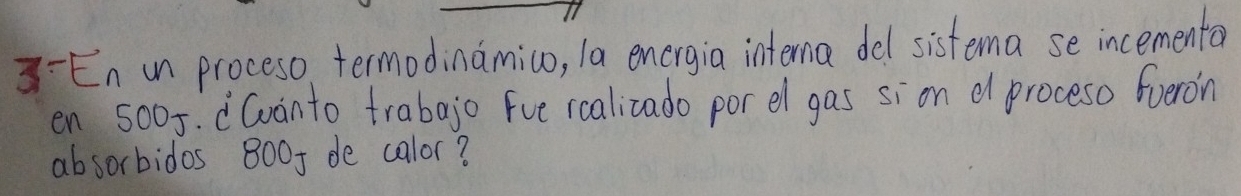 3-En un proceso termodinámico, la energia interna del sistema se incementa
en 500J. ¿Cuánto trabajo fue realizado por el gas si en el proceso fuerón
absorbidos 800J de calor?